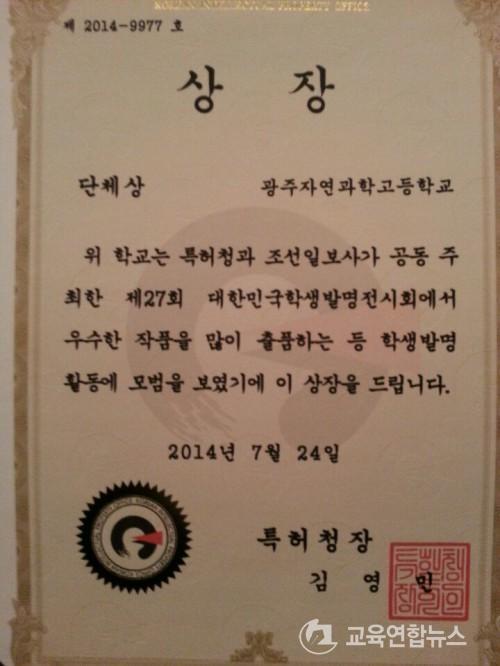 KOREAN INTELLECTUAL PROPERTY OFFICE
제 2014-9977 호
상 장
단체상 광주자연과학고등학교
위 학교는 특허청과 조선일보사가 공동 주
최한 제27회 대한민국학생발명전시회에서
우수한 작품을 많이 출품하는 등 학생발명
활동에 모범을 보였기에 이 상장을 드립니다.
2014년 7월 24일
특허청장
김 영 민
교육연합뉴스